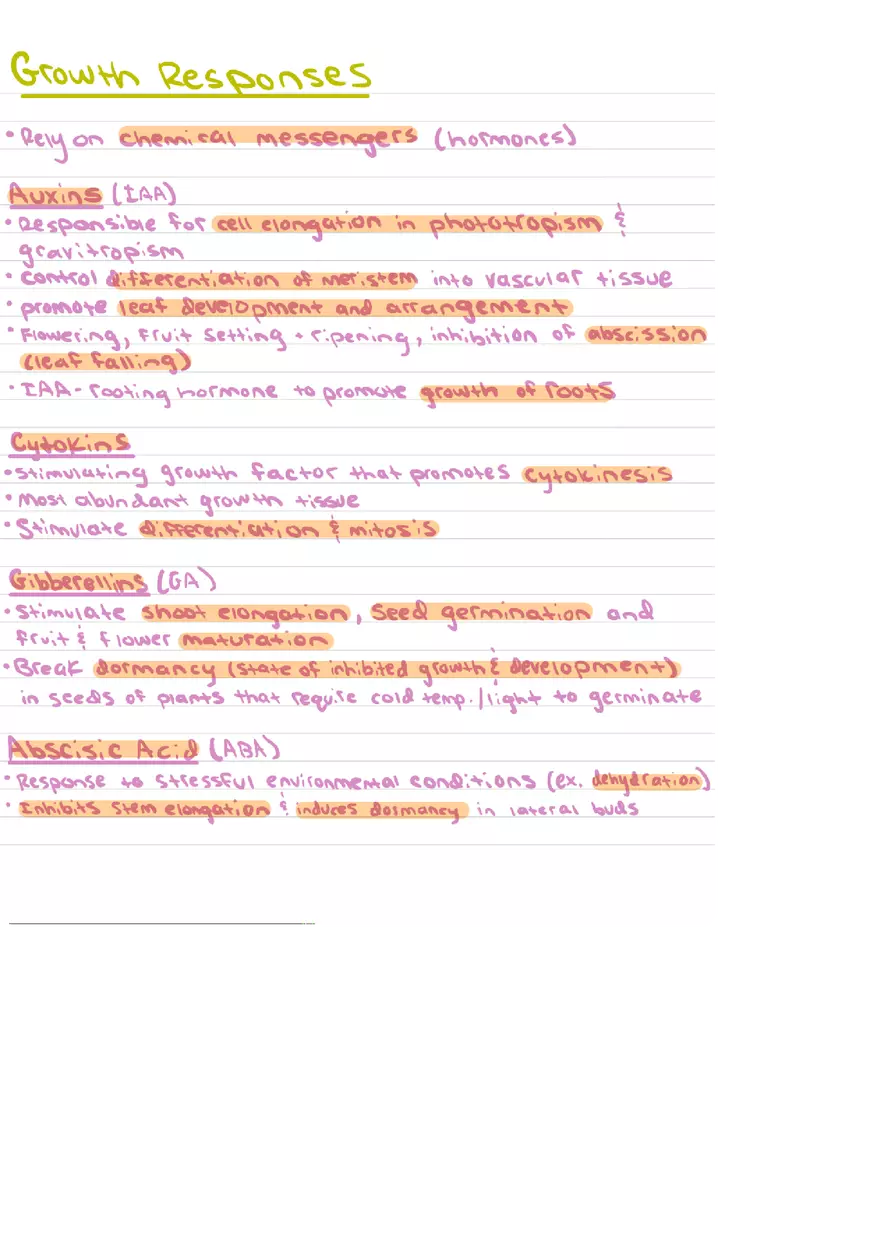 Growth Responses
• Rely on chemical messengers (hormones)
Auxins (IAA)
• Responsible for cell elongation in phototropism &
gravitropism
• control differentiation of meristem into vascular tissue
• promote leaf development and arrangement
• Flowering, fruit setting + ripening, inhibition of abscission
(leaf falling)
• IAA - rooting hormone to promote growth of roots
Cytokins
• stimulating growth factor that promotes cytokinesis
• Most abundant growth tissue
• Stimulate differentiation & mitosis
Gibberellins (GA)
• Stimulate shoot elongation, seed germination and
fruit & flower maturation
• Break dormancy (state of inhibited growth & development)
in seeds of plants that require cold temp./light to germinate
Abscisic Acid (ABA)
• Response to stressful environmental conditions (ex. dehydration)
• Inhibits stem elongation & induces dormancy in lateral buds